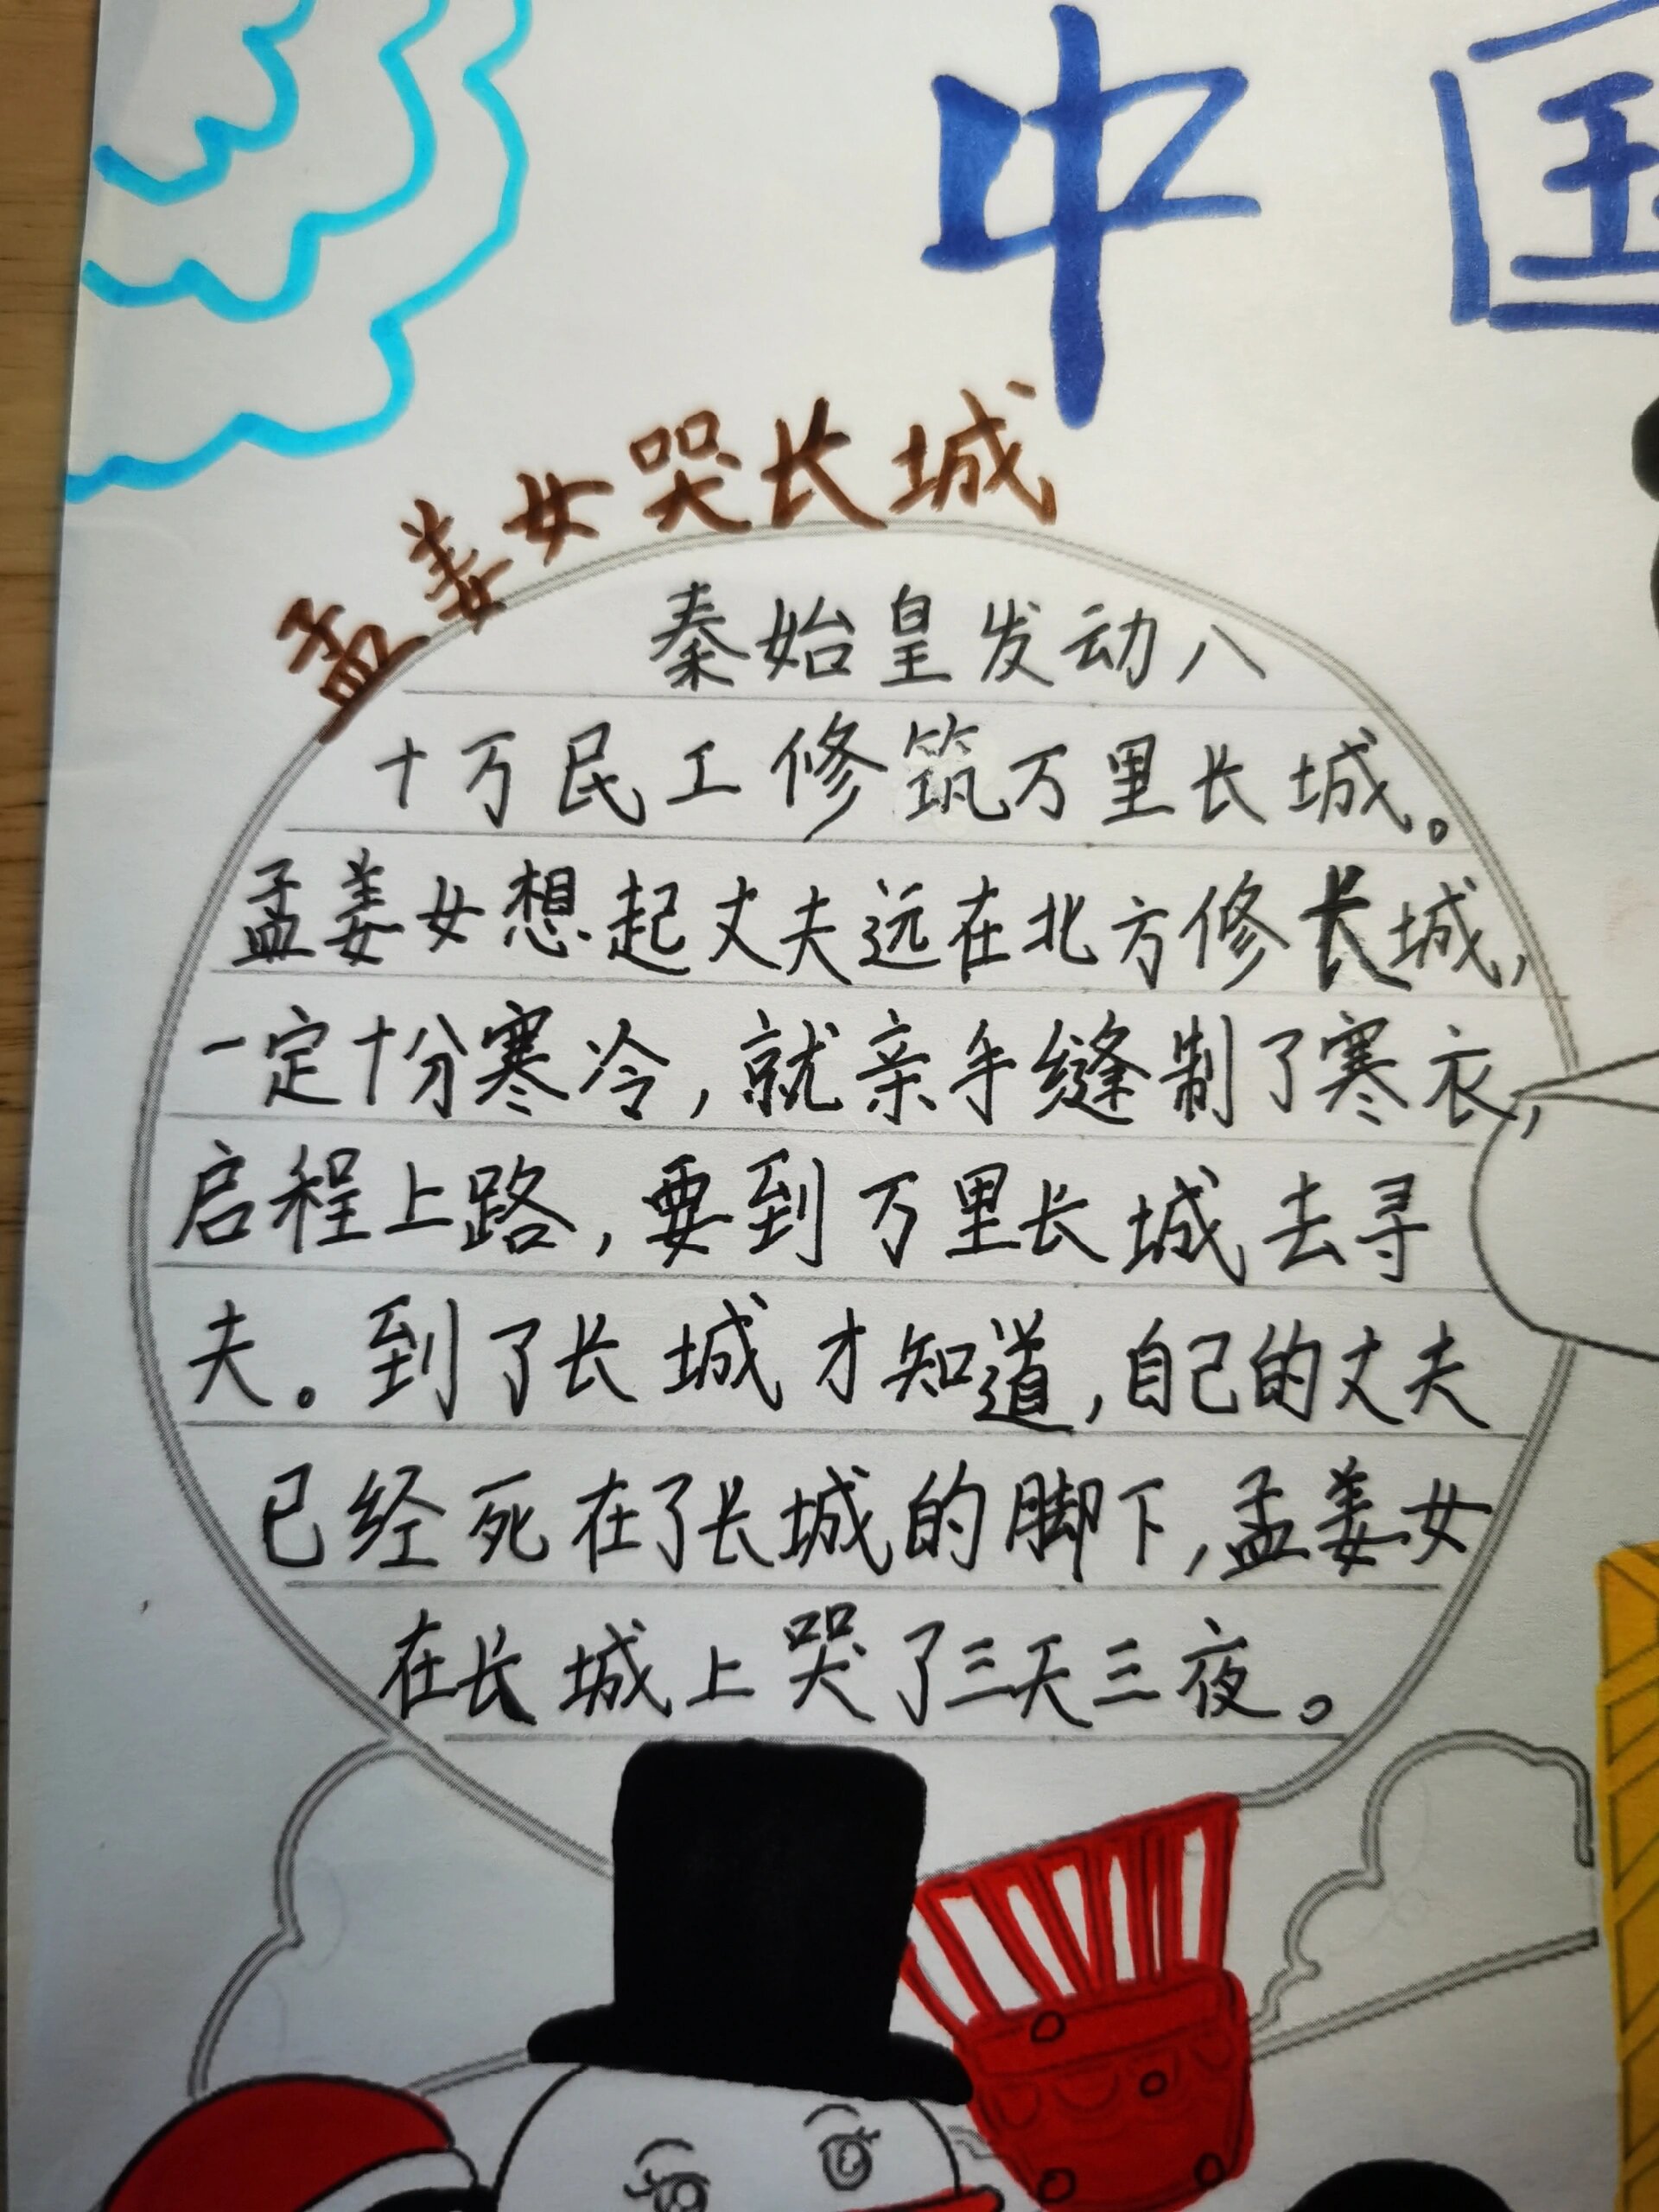 中国
孟姜女哭长城
秦始皇发动八
十万民工修筑万里长城。
孟姜女想起丈夫远在北方修长城,
一定十分寒冷,就亲手缝制了寒衣,
启程上路,要到万里长城去寻
夫。到了长城才知道,自己的丈夫
已经死在了长城的脚下,孟姜女
在长城上哭了三天三夜。